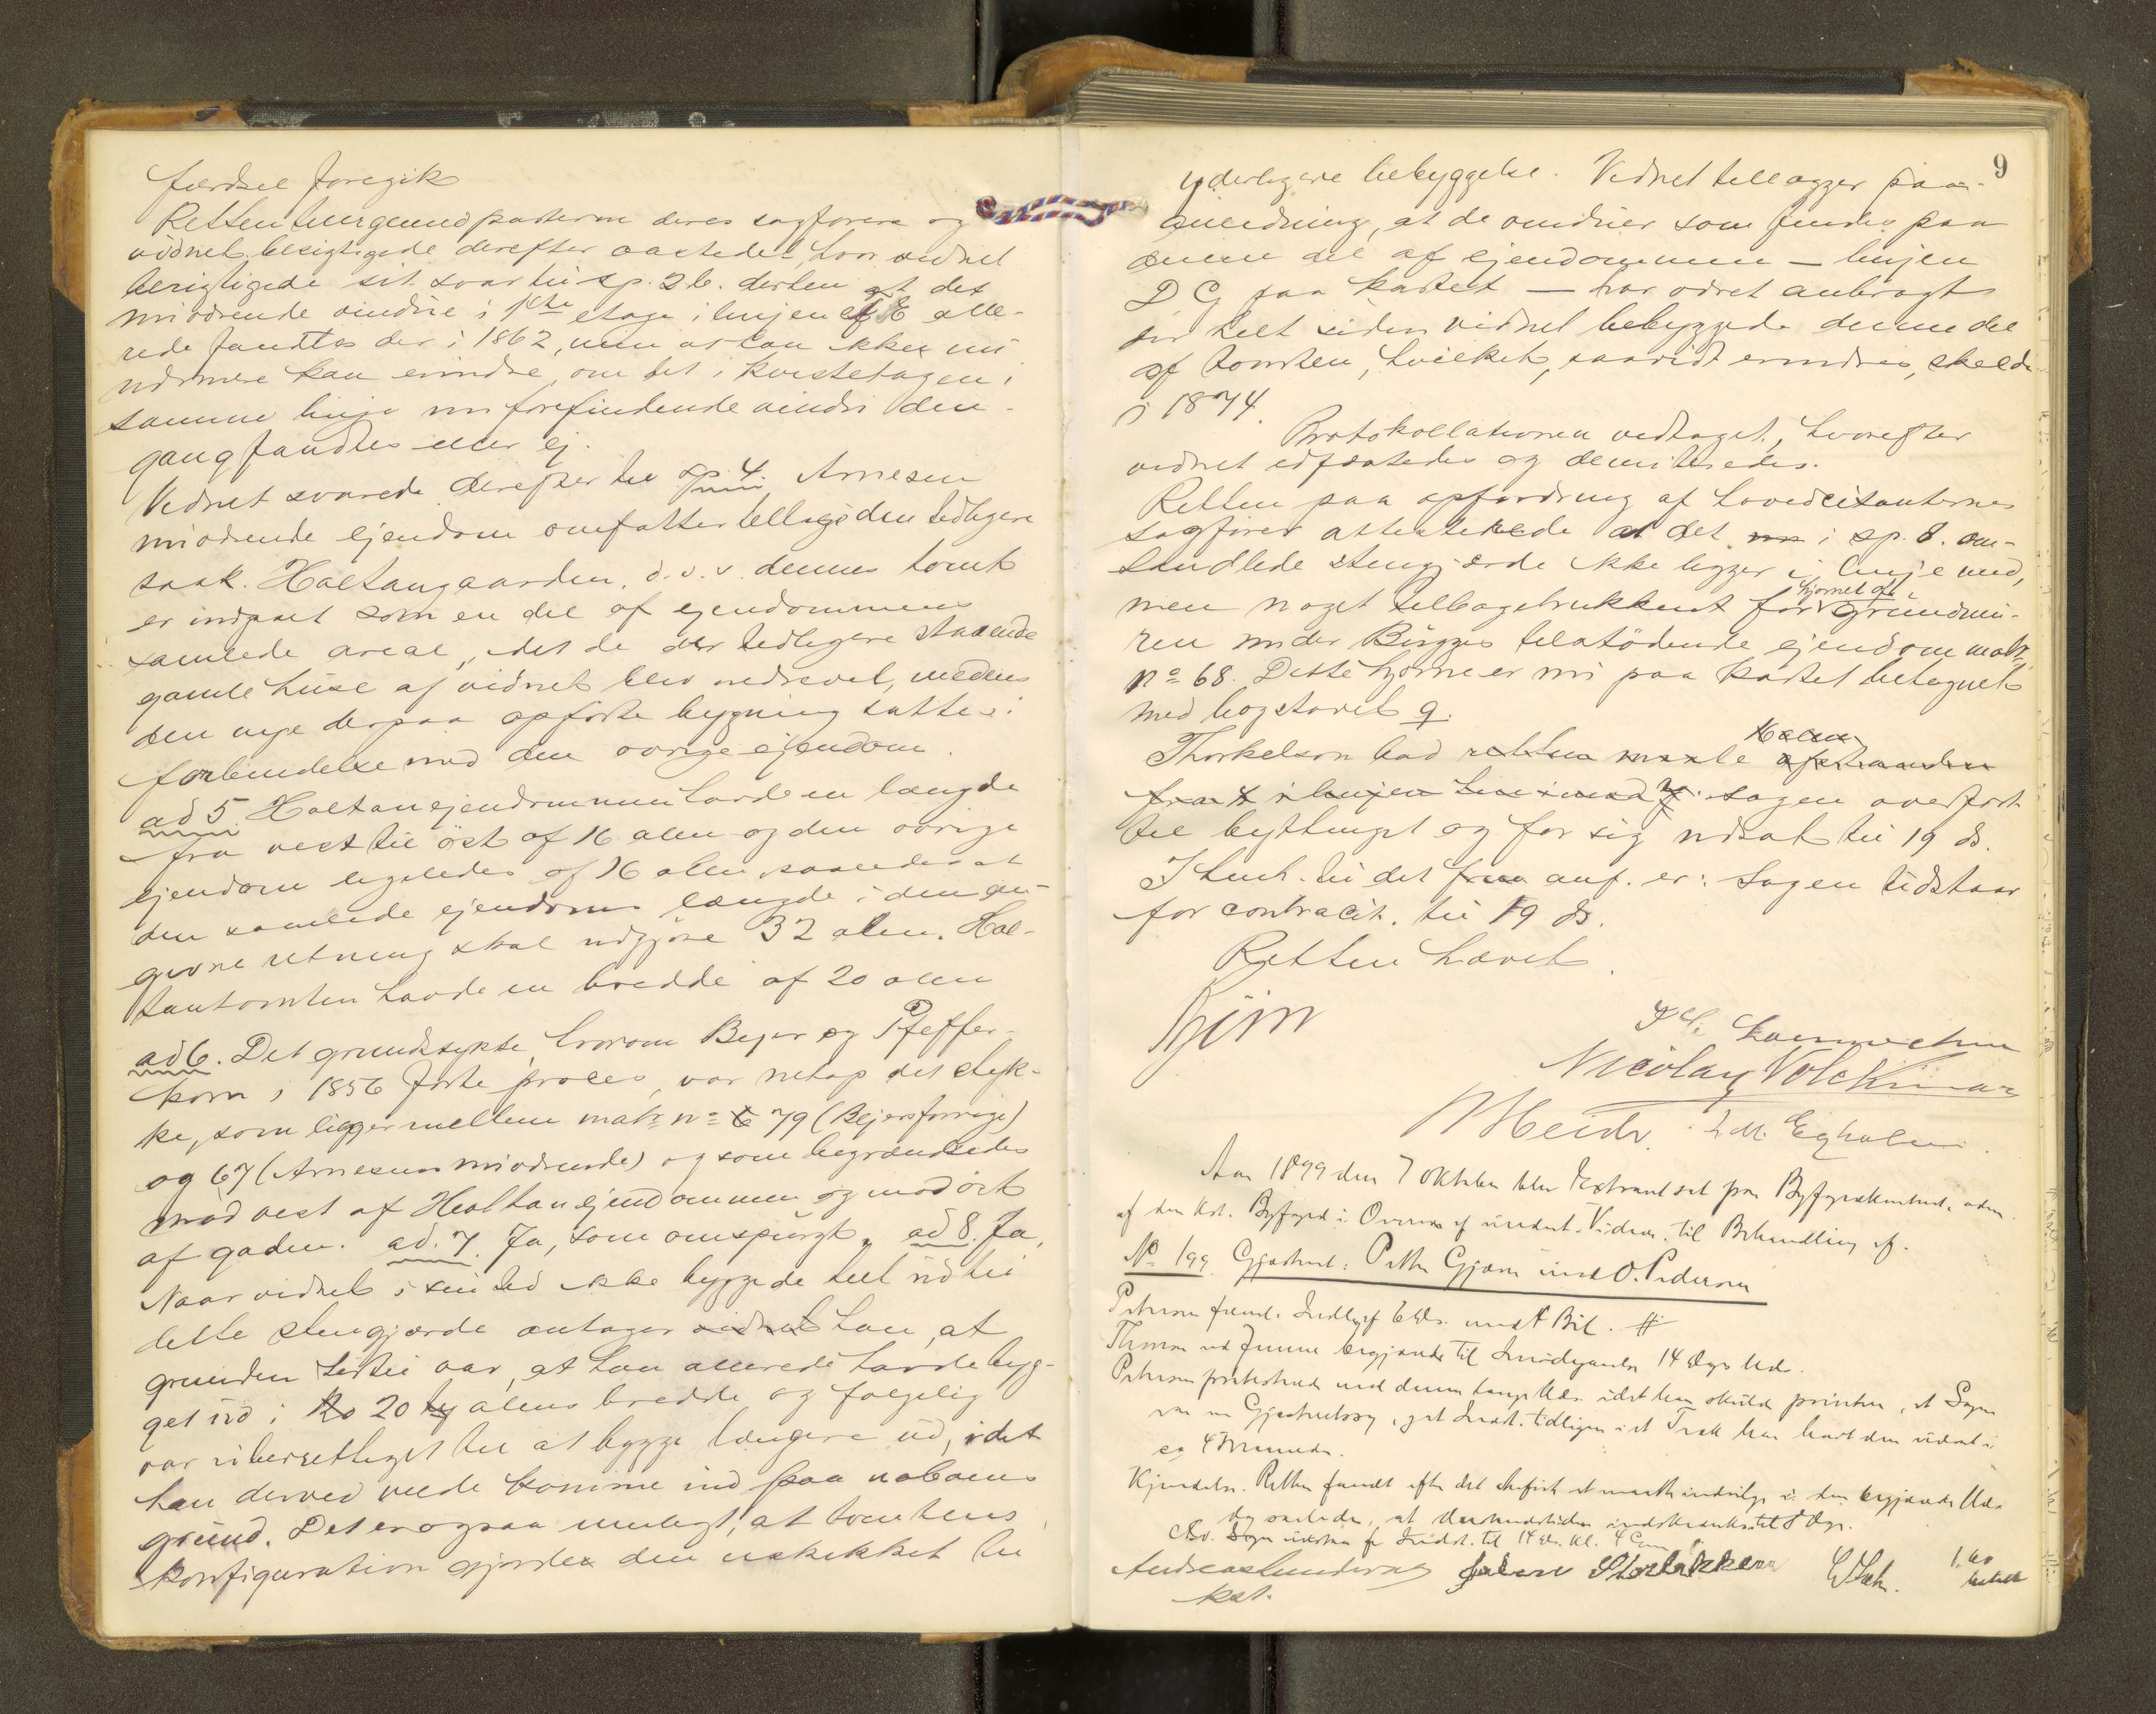 færdsel foregik
Retten tilligemed parterne deres sagførere og
vidnet besigtigede derefter aastedet, hvor vidnet
berigtigede sit svar til sp. 2 b. derhen at det
nuværende vindue i 1ste etage i linjen E alle-
rede fandtes der i 1862, men at han ikke nu
nærmere kan erindre, om det i kvistetagen i
samme linje nu forefindende vindu den-
gang fandtes eller ej.
Vidnet svarede derefter til sp. 4. Arnesens
nuværende ejendom omfatter tillige den tidligere
saak. Holtangaarden, d.v.s. dennes tomt
er indgaaet som en del af ejendommens
samlede areal, idet de der tidligere staaende
gamle huse af vidnet blev nedrevet, medens
den nye derpaa opførte bygning sattes i
forbindelse med den øvrige ejendom.
ad 5 Holtanejendommen havde en længde
fra vest til øst af 16 alen og den øvrige
ejendom ligeledes af 16 alen, saaledes at
den samlede ejendoms længde i den an-
givne retning skal udgjøre 32 alen. Hol-
tantomten havde en bredde af 20 alen
ad 6. Det grundstykke, hvorom Bejer og Pfeffer-
korn i 1856 førte proces, var netop det styk-
ke, som ligger mellem matr. no 79 (Bejers forrige)
og 67 (Arnesens nuværende) og som begrændsedes
mod vest af Holtanejendommen og mod øst
af gaden. ad. 7. Ja, som omspurgt. ad 8. Ja,
Naar vidnet i sin tid ikke byggede helt ud til
dette stengjærde antager vidnet han, at
grunden hertil var, at han allerede havde byg-
get ud i 20 alens bredde og følgelig
var uberettiget til at bygge længere ud, idet
han derved vilde komme ind paa naboens
grund. Det er ogsaa muligt, at tomtens
konfiguration gjorde den uskikket til
9
yderligere bebyggelse. Vidnet tillægger paa
anledning, at de vinduer som findes paa
denne del af ejendommen — linjen
D G paa kartet — har været anbragt
der helt siden vidnet bebyggede denne del
af tomten, hvilket, saavidt erindres, skede
i 1874.
Protokollationen vedtaget, hvorefter
vidnet edfæstedes og demitteredes.
Retten paa opfordring af hovedcitanternes
sagfører attesterede at det i sp. 8. om-
handlede stengjærde ikke ligger i linje med,
men noget tilbagetrukkent for hjørnet af grundmu-
ren under Bugges tilstødende ejendom matr.
no 68. Dette hjørne er nu paa kartet betegnet
med bogstavet g.
Thorkelson bad sagen overført
til bytinget og for sig udsat til 19 ds.
I henh. til det anf. er: Sagen udstaar
for contracit. til 19 ds.
Retten hævet.
Nicolay Volckmar
Aar 1899 den 7 Oktober blev Extraret sat paa Byfogedkontoret, adm.
af den kst. Byfoged i Overvær af undert. Vidner, til Behandling af.
No 199. Gjæsteret: Petter Gjærn imod O. Pedersen
Thomsen ved Jenssen begjærede til Imødegaaelse 14 Dages Uds.
Petersen protesterede mod denne lange Uds. idet han skulde paavise, at Sagen
var en Gjæsteretssag, og at Indst. tidligere i et Træk har havt den udsat i
ca 4 Maaneder.
Kjendelse. Retten fandt efter det anførte at maatte indvilge i den begjærede Uds.
dog saaledes, at Udsættelsestiden indskrænkedes til 8 Dage.
Andreas Gundersen
kst.
1.60
betalt